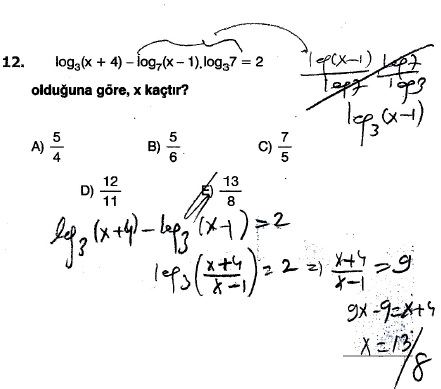 12. log₃(x + 4) – log₇(x – 1).log₃7 = 2
olduğuna göre, x kaçtır?
A) 5/4 B) 5/6 C) 7/5
D) 12/11 E) 13/8
log(x-1)/log7 log7/log3
log₃(x-1)
log₃(x+4) - log₃(x-1) = 2
log₃(x+4/x-1) = 2 => x+4/x-1 = 9
9x-9=x+4
x=13/8